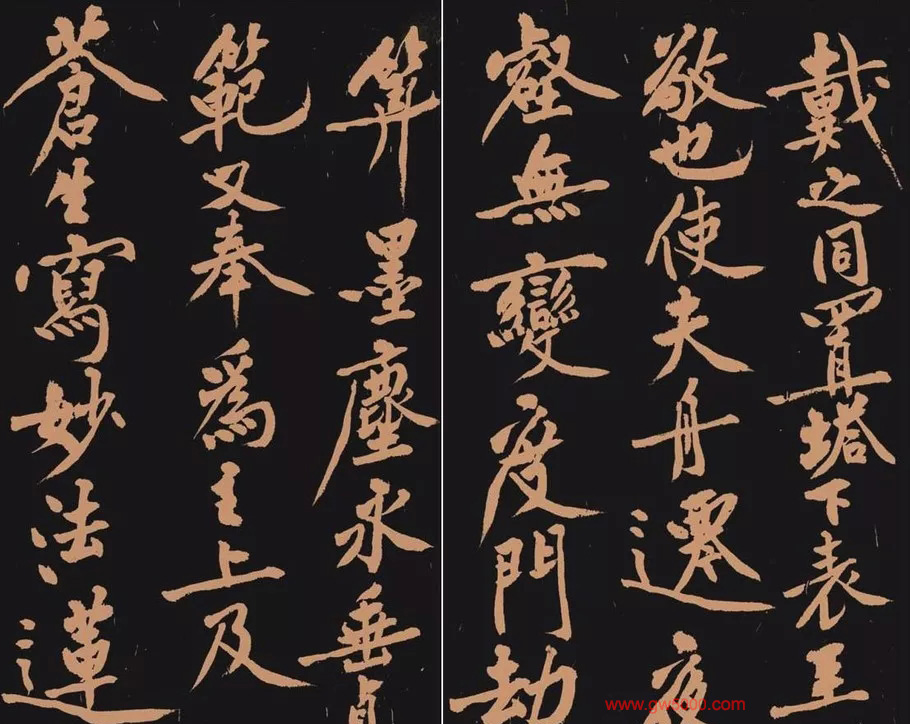 戴之同置塔下表至
敬也使夫舟遷夜
壑無變度門劫
算墨塵永垂貞
範又奉為主上及
蒼生寫妙法蓮